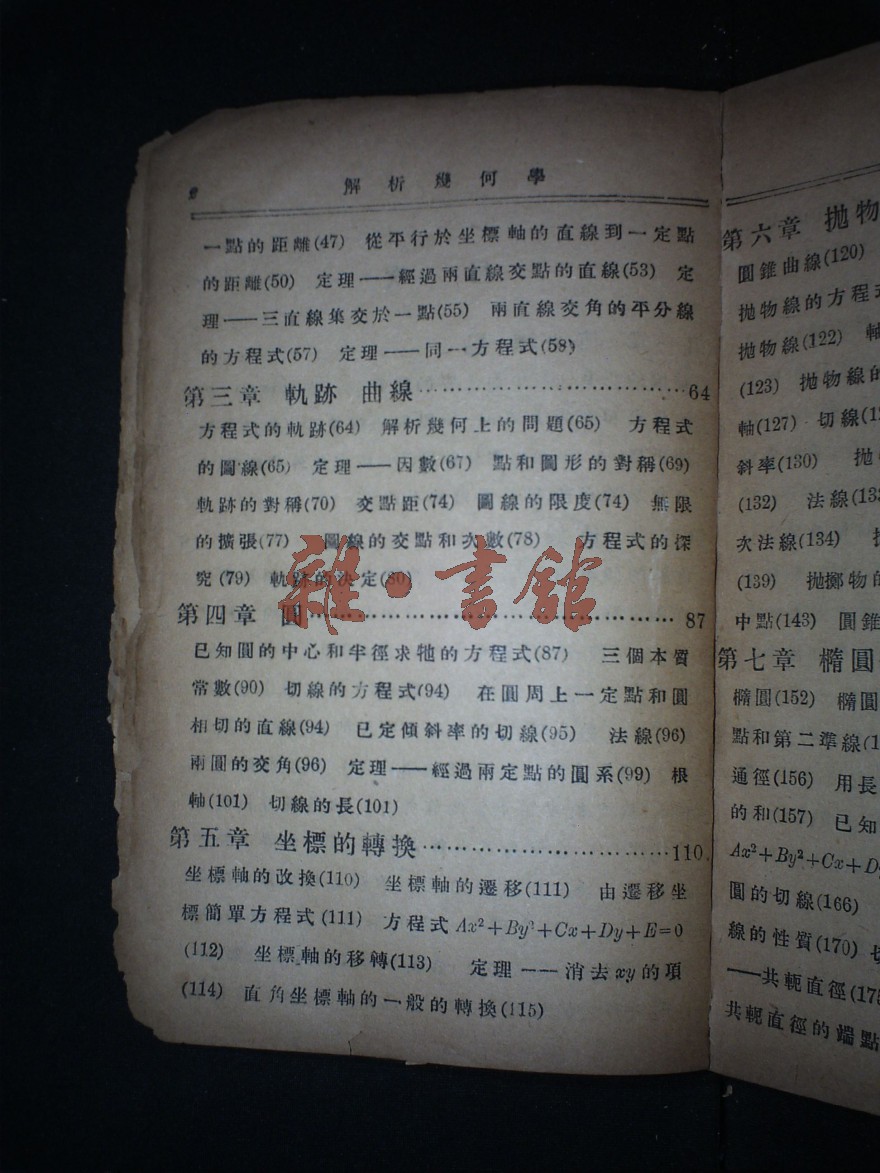 2 解析幾何學
一點的距離(47) 從平行於坐標軸的直線到一定點
的距離(50) 定理——經過兩直線交點的直線(53) 定
理——三直線集交於一點(55) 兩直線交角的平分線
的方程式(57) 定理——同一方程式(58)
第三章 軌跡 曲線……………………………64
方程式的軌跡(64) 解析幾何上的問題(65) 方程式
的圖線(65) 定理——因數(67) 點和圖形的對稱(69)
軌跡的對稱(70) 交點距(74) 圖線的限度(74) 無限
的擴張(77) 圖線的交點和次數(78) 方程式的探
究(79) 軌跡的决定(80)
第四章 圓……………………………………87
已知圓的中心和半徑求牠的方程式(87) 三個本質
常數(90) 切線的方程式(94) 在圓周上一定點和圓
相切的直線(94) 已定傾斜率的切線(95) 法線(96)
兩圓的交角(96) 定理——經過兩定點的圓系(99) 根
軸(101) 切線的長(101)
第五章 坐標的轉換…………………………110
坐標軸的改換(110) 坐標軸的遷移(111) 由遷移坐
標簡單方程式(111) 方程式 Ax²+By²+Cx+Dy+E=0
(112) 坐標軸的移轉(113) 定理——消去xy的項
(114) 直角坐標軸的一般的轉換(115)
雜·書館
第六章 拋物
圓錐曲線(120)
拋物線的方程式
拋物線(122) 軸
(123) 拋物線的
軸(127) 切線(12
斜率(130) 拋
(132) 法線(133
次法線(134)
(139) 拋擲物的
中點(143) 圓錐
第七章 橢圓
橢圓(152) 橢圓
點和第二準線(1
通徑(156) 用長
的和(157) 已知
Ax²+By²+Cx+Dy
圓的切線(166)
線的性質(170) 切
——共軛直徑(175
共軛直徑的端點